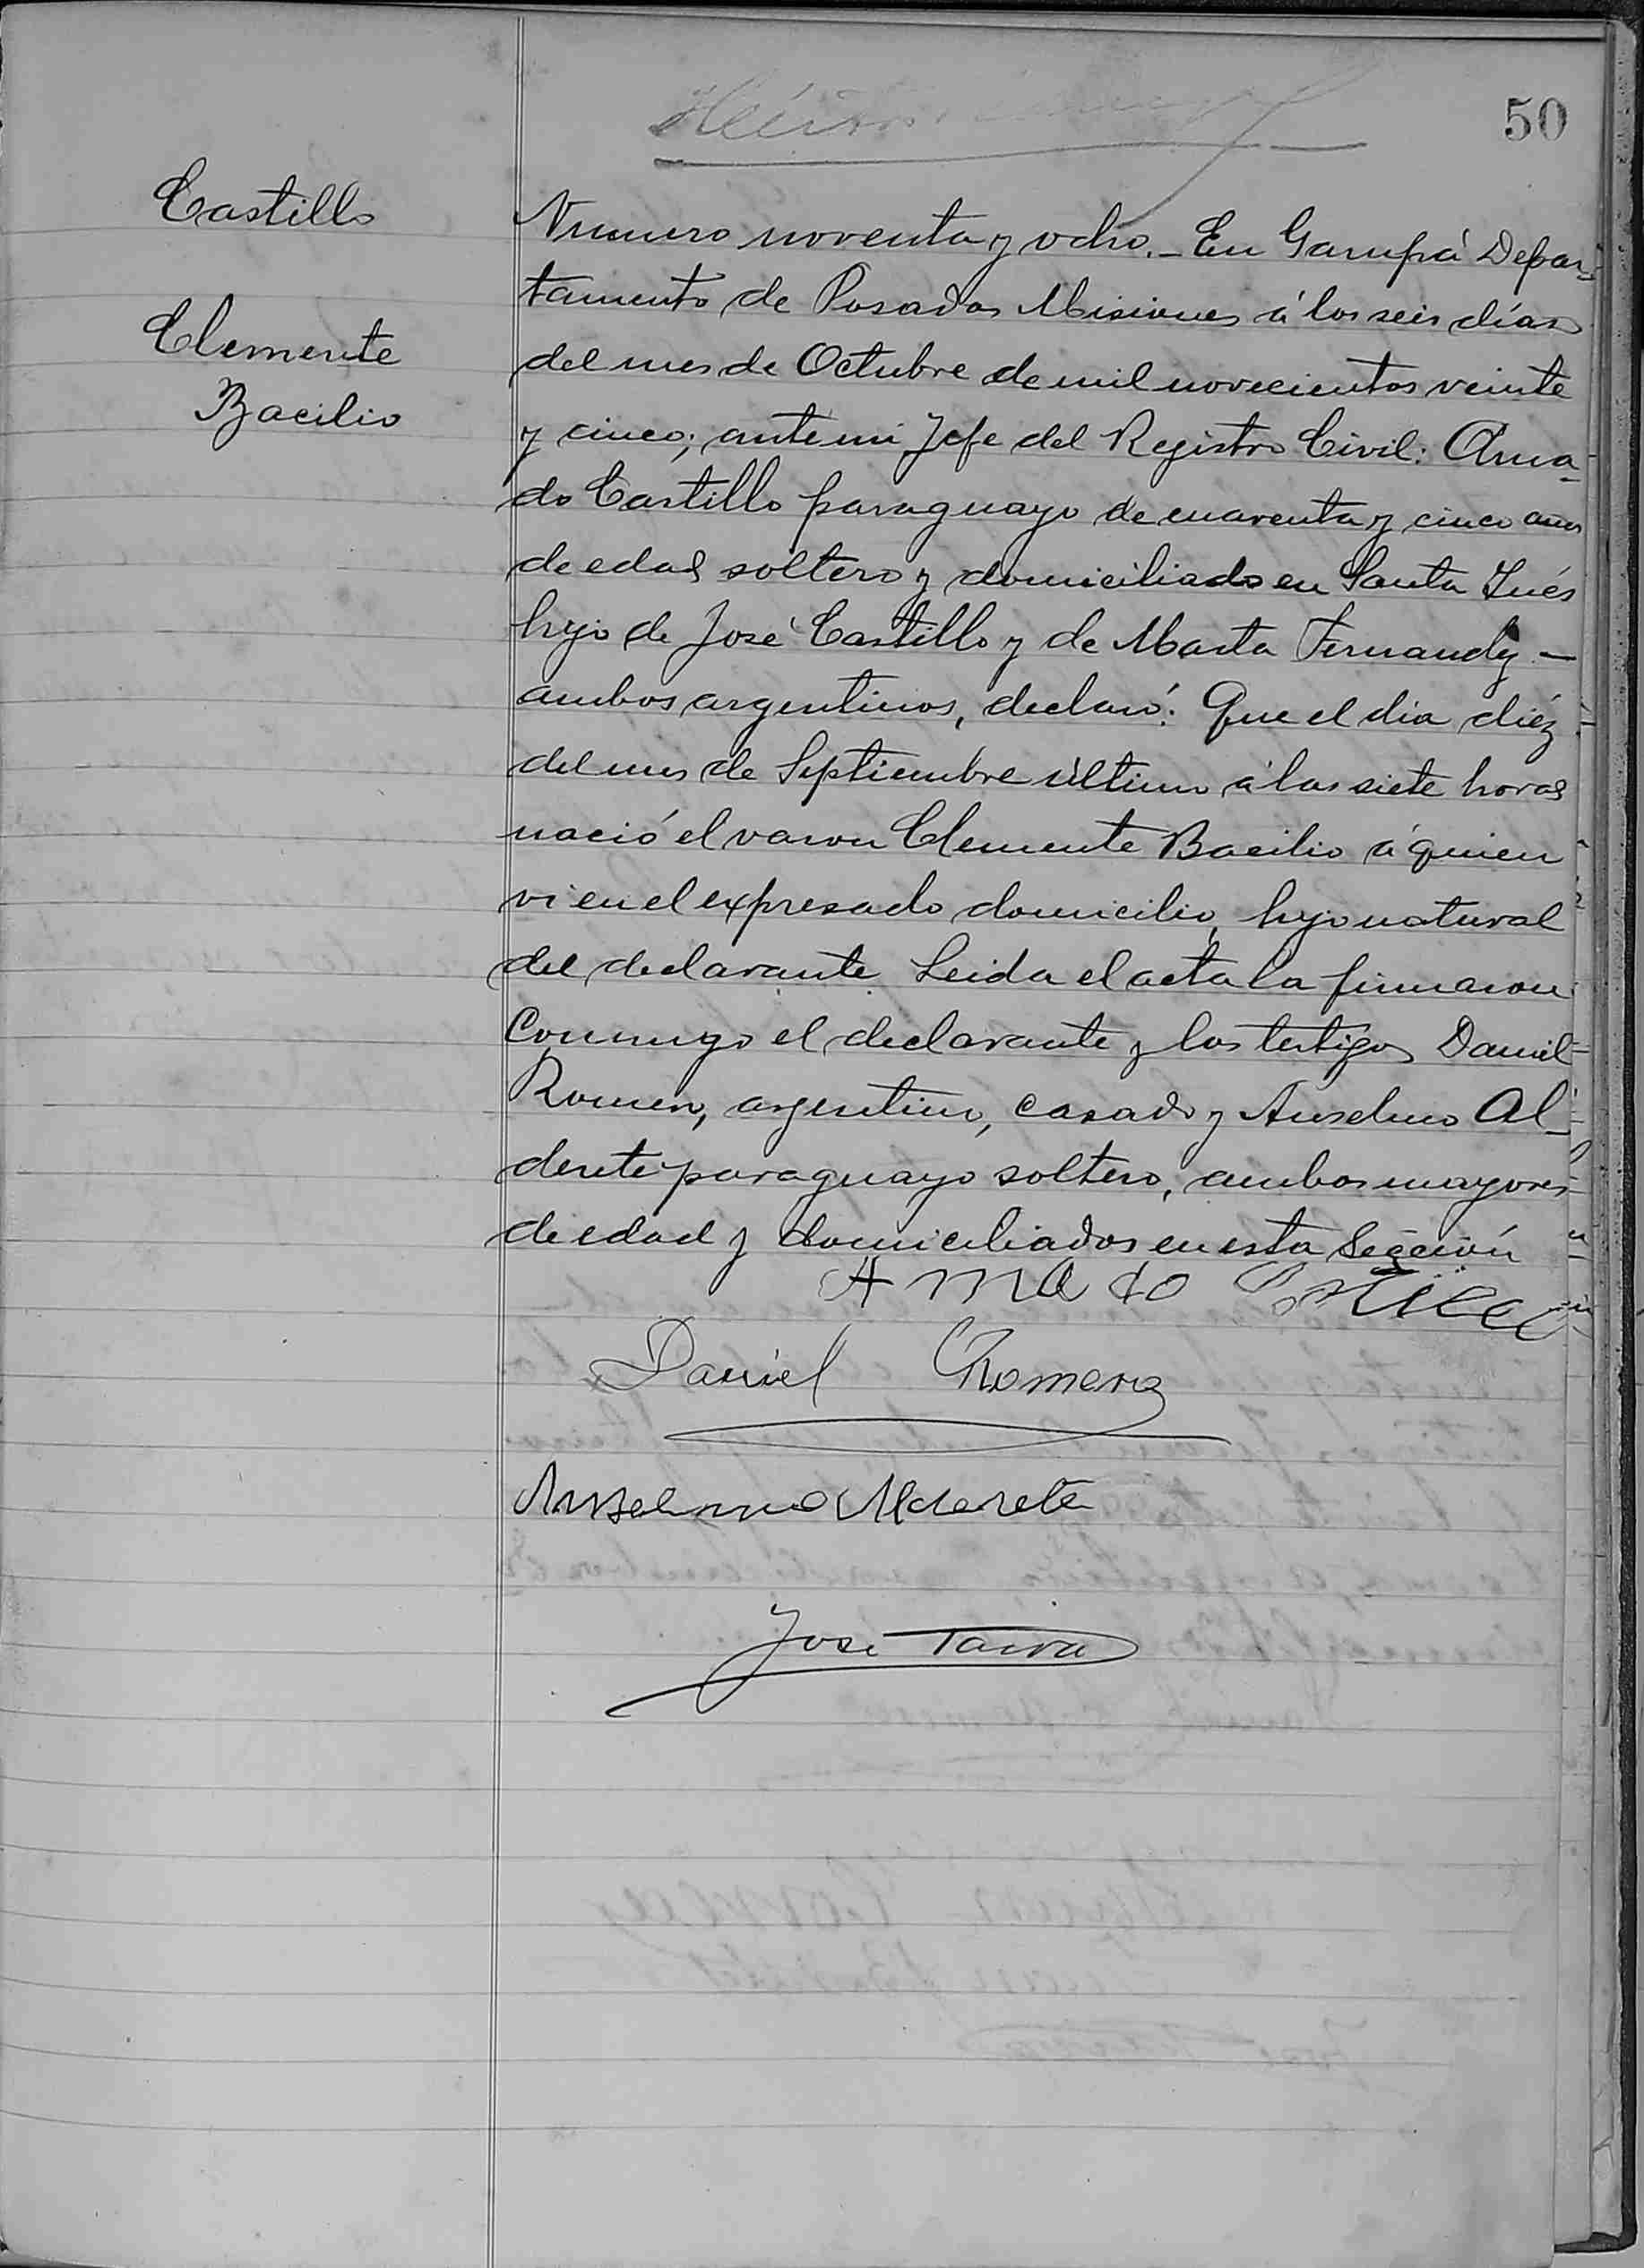 50
Castillo
Clemente
Bacilio
Numero noventa y ocho._ En Garupá Depar-
tamento de Posadas Misiones á los seis días
del mes de Octubre de mil novecientos veinte
y cinco; ante mi Jefe del Registro Civil: Ama-
do Castillo paraguayo de cuarenta y cinco años
de edad soltero y domiciliado en Santa Inés
hijo de José Castillo y de Marta Fernandz —
ambos argentinos, declaró: Que el dia diéz
del mes de Septiembre último á las siete horas
nació el varon Clemente Bacilio á quien
vi en el expresado domicilio, hijo natural
del declarante. Leida el acta la firmaron
conmigo el declarante y los testigos Daniel
Romero, argentino, casado y Anselmo Al-
derete paraguayo soltero, ambos mayores
de edad y domiciliados en esta Sección
Amado Castillo
Daniel Romero
Anselmo Alderete
José Paiva